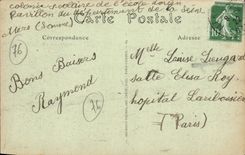 colonie scolaire de l'école
Pavillon du département de la Seine
Carte Postale
(Somme)
Correspondance
Adresse
76
Bons Baisers
Raymond
76
Melle Louise
salle Elisa Roy
hopital Lariboisière
(Paris)
10